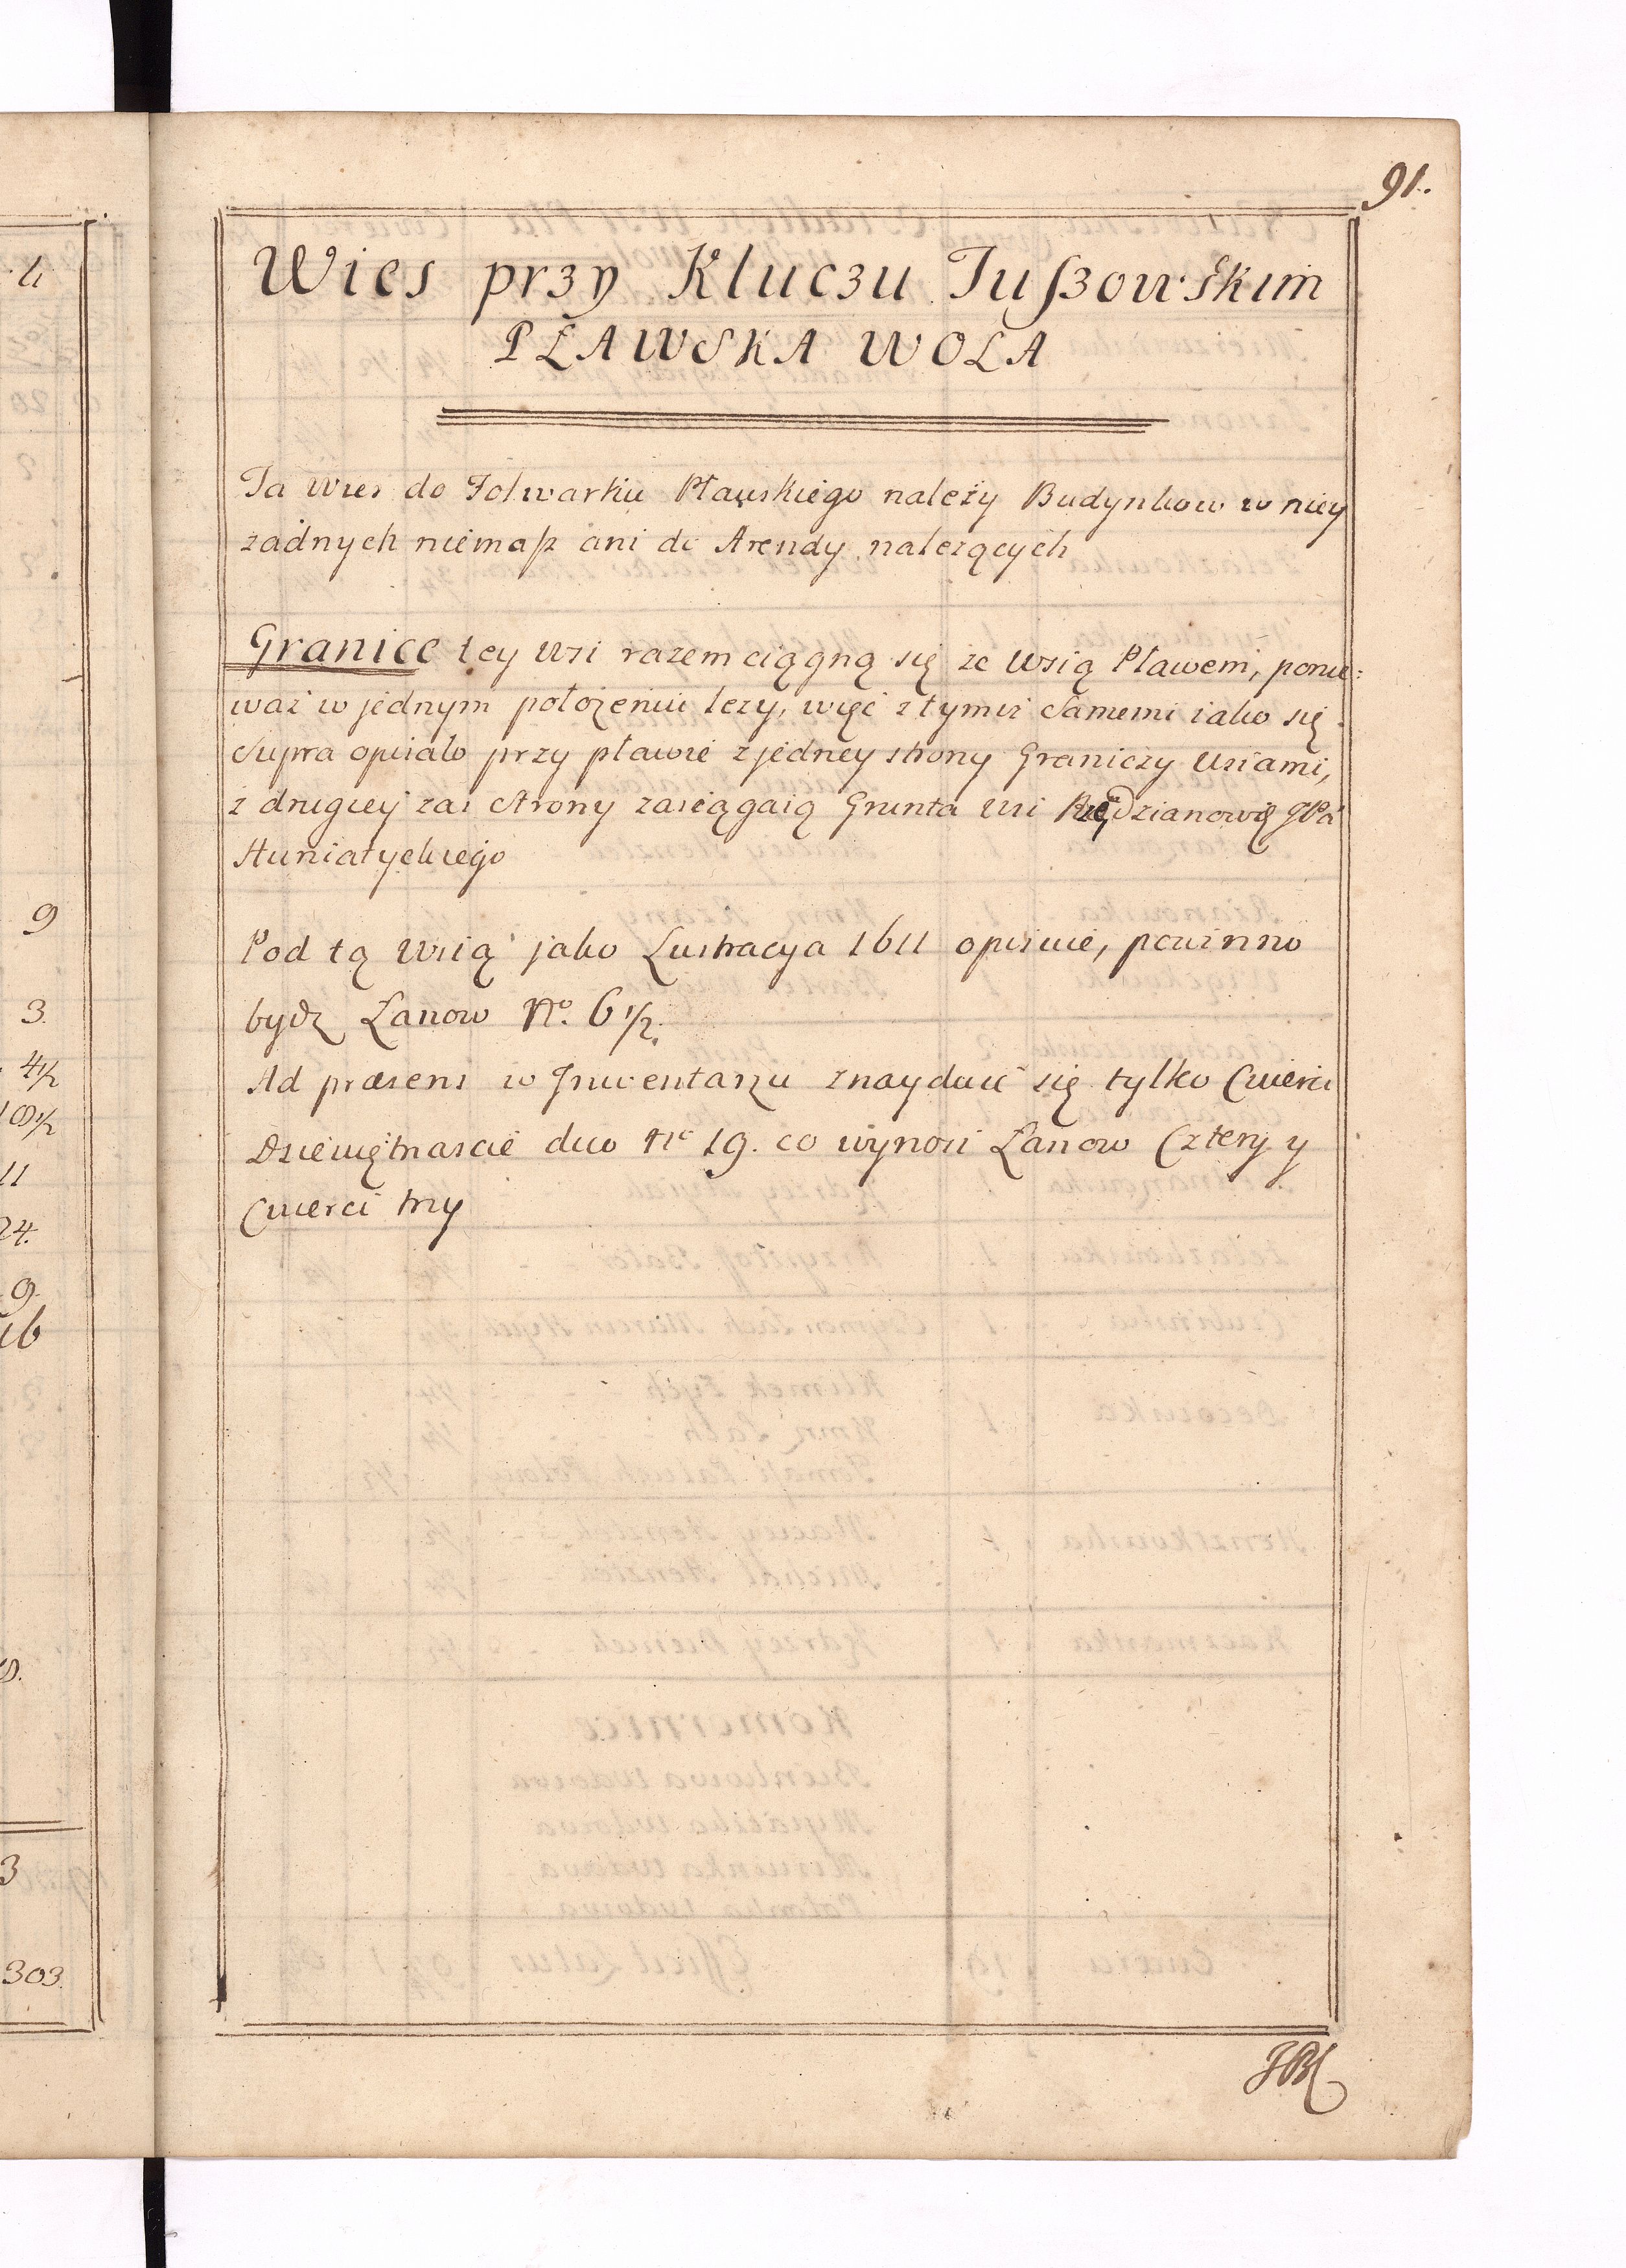 91.
Wies przy Kluczu Tuszowskim
PŁAWSKA WOLA
Ta wies do Folwarku Pławskiego należy Budynkow w niey
zadnych niemasz ani do Arendy nalezących
Granice tey wsi razem ciągną się ze wsią Pławem, ponie=
waż w jednym położeniu lezy, więc z tymiż samemi iako się
supra opisało przy pławie z jedney strony Graniczy wsiami,
z drugiey zas strony zasiągaią Grunta wsi Rzędzianowię JPa
Huniatyckiego
Pod tą wsią jako Lustracya 1611 opisuie, powinno
bydz Łanow No. 6 1/2.
Ad præsens w Inwentarzu znayduie się tylko Cwierci
Dziewiętnascie duo No 19. co wynosi Łanow Cztery y
Cwierci trzy
4
20
2
2
9
3.
4 1/2
18 1/2
11
24.
9.
16
3
303.